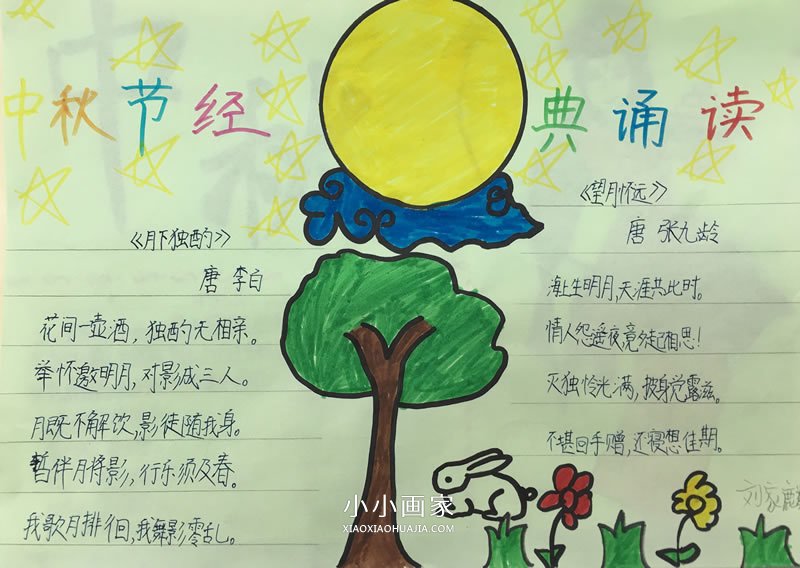 中秋节经典诵读
《月下独酌》
唐 李白
花间一壶酒，独酌无相亲。
举怀邀明月，对影成三人。
月既不解饮，影徒随我身。
暂伴月将影，行乐须及春。
我歌月排徊，我舞影零乱。
《望月怀远》
唐 张九龄
海上生明月，天涯共此时。
情人怨遥夜，竟夕起相思！
灭独怜光满，披身觉露滋。
不堪回手赠，还寝想佳期。
刘家麟
小小画家
XIAOXIAOHUAJIA.COM